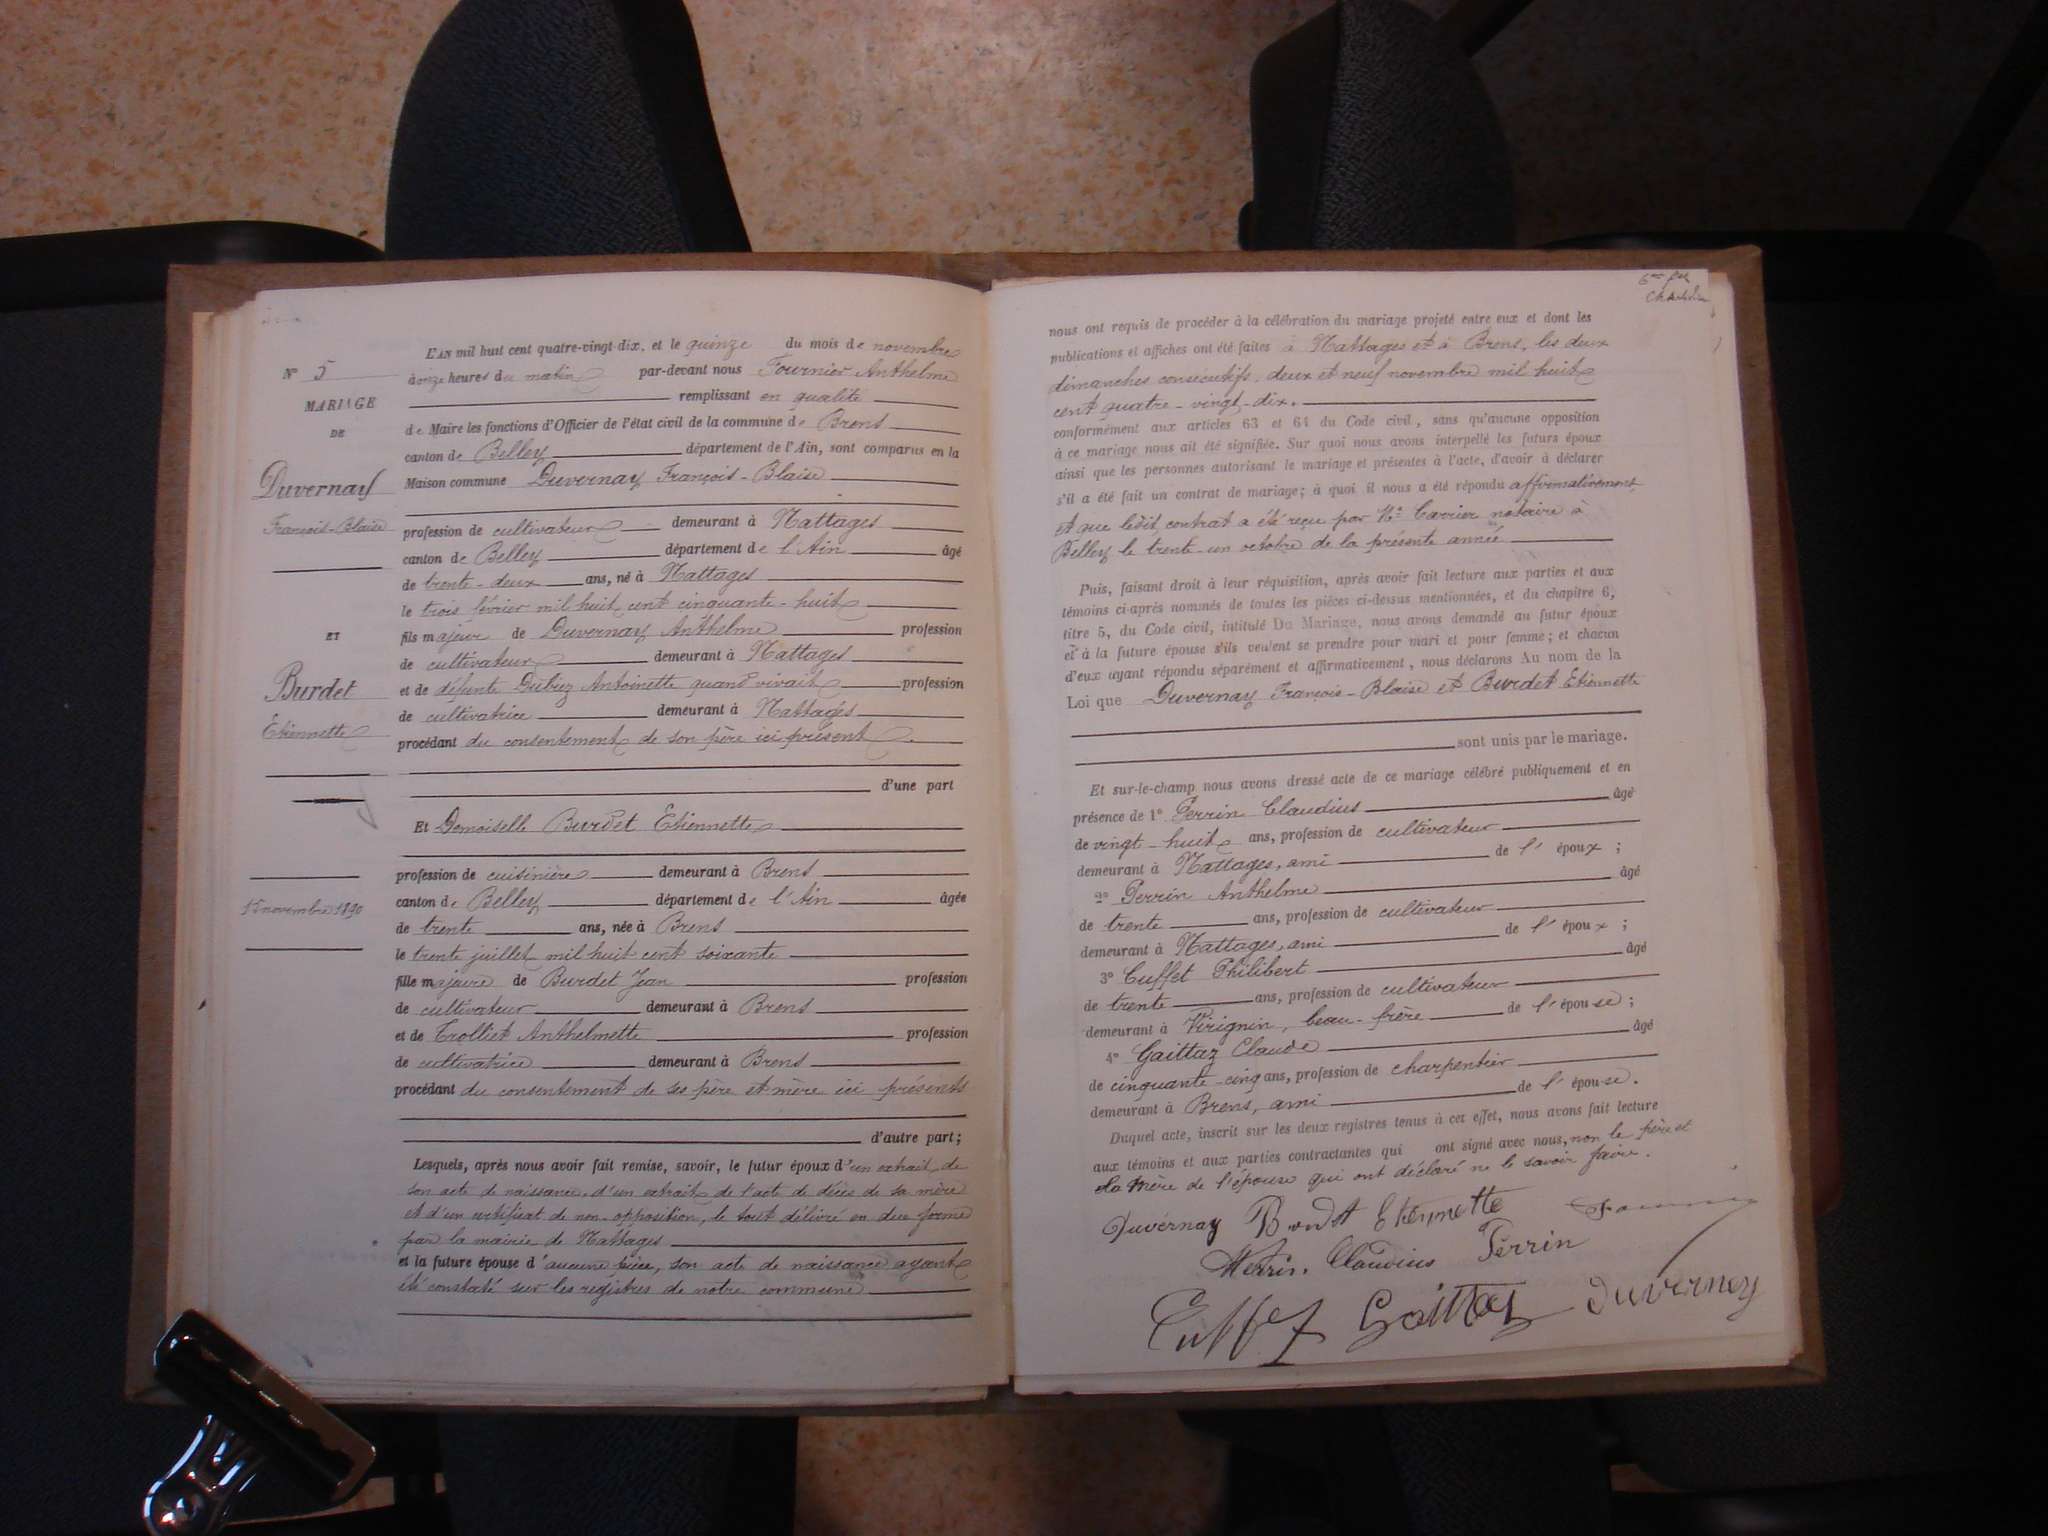 N° 5
MARIAGE
DE
Duvernay
François-Blaise
ET
Burdet
Etiennette
15 novembre 1890
L'AN mil huit cent quatre-vingt-dix, et le quinze du mois de novembre
à onze heures du matin par-devant nous Fournier Anthelme
remplissant en qualité
de Maire les fonctions d'Officier de l'état civil de la commune de Brens
canton de Belley département de l'Ain, sont comparus en la
Maison commune Duvernay François-Blaise
profession de cultivateur demeurant à Nattages
canton de Belley département de l'Ain âgé
de trente-deux ans, né à Nattages
le trois février mil huit cent cinquante-huit
fils majeur de Duvernay Anthelme profession
de cultivateur demeurant à Nattages
et de défunte Dubiez Antoinette quand vivait profession
de cultivatrice demeurant à Nattages
procédant du consentement de son père ici présent.
d'une part
Et Demoiselle Burdet Etiennette
profession de cuisinière demeurant à Brens
canton de Belley département de l'Ain âgée
de trente ans, née à Brens
le trente juillet mil huit cent soixante
fille majeure de Burdet Jean profession
de cultivateur demeurant à Brens
et de Trolliet Anthelmette profession
de cultivatrice demeurant à Brens
procédant du consentement de ses père et mère ici présents
d'autre part;
Lesquels, après nous avoir fait remise, savoir, le futur époux d'un extrait de
son acte de naissance, d'un extrait de l'acte de décès de sa mère
et d'un certificat de non-opposition, le tout délivré en due forme
par la mairie de Nattages
et la future épouse d'aucune pièce, son acte de naissance ayant
été constaté sur les registres de notre commune
nous ont requis de procéder à la célébration du mariage projeté entre eux et dont les
publications et affiches ont été faites à Nattages et à Brens, les deux
dimanches consécutifs, deux et neuf novembre mil huit
cent quatre-vingt-dix.
conformément aux articles 63 et 64 du Code civil, sans qu'aucune opposition
à ce mariage nous ait été signifiée. Sur quoi nous avons interpellé les futurs époux
ainsi que les personnes autorisant le mariage et présentes à l'acte, d'avoir à déclarer
s'il a été fait un contrat de mariage; à quoi il nous a été répondu affirmativement
et que ledit contrat a été reçu par Me Carrier notaire à
Belley le trente-un octobre de la présente année
Puis, faisant droit à leur réquisition, après avoir fait lecture aux parties et aux
témoins ci-après nommés de toutes les pièces ci-dessus mentionnées, et du chapitre 6,
titre 5, du Code civil, intitulé Du Mariage, nous avons demandé au futur époux
et à la future épouse s'ils veulent se prendre pour mari et pour femme; et chacun
d'eux ayant répondu séparément et affirmativement, nous déclarons Au nom de la
Loi que Duvernay François-Blaise et Burdet Etiennette
sont unis par le mariage.
Et sur-le-champ nous avons dressé acte de ce mariage célébré publiquement et en
présence de 1° Perrin Claudius âgé
de vingt-huit ans, profession de cultivateur
demeurant à Nattages, ami de l'époux;
2° Perrin Anthelme âgé
de trente ans, profession de cultivateur
demeurant à Nattages, ami de l'époux;
3° Cuffet Philibert âgé
de trente ans, profession de cultivateur
demeurant à Virignin, beau-frère de l'épouse;
4° Gaittaz Claude âgé
de cinquante-cinq ans, profession de charpentier
demeurant à Brens, ami de l'épouse.
Duquel acte, inscrit sur les deux registres tenus à cet effet, nous avons fait lecture
aux témoins et aux parties contractantes qui ont signé avec nous, non le père et
la mère de l'épouse qui ont déclaré ne le savoir faire.
Duvernay Burdet Etiennette
Perrin Claudius Perrin
Cuffet Gaittaz Duvernay